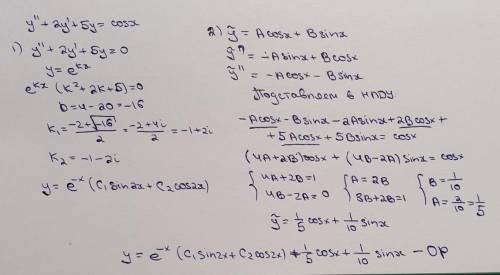 y'' + 2y' + 5y = cosx
1) y'' + 2y' + 5y = 0
y = e^{kx}
e^{kx} (k² + 2k + 5) = 0
D = 4 - 20 = -16
k₁ = (-2 + √-16)/2 = (-2 + 4i)/2 = -1 + 2i
k₂ = -1 - 2i
y = e^{-x} (C₁ sin2x + C₂ cos2x)
2) ỹ = Acosx + Bsinx
ỹ' = -Asinx + Bcosx
ỹ'' = -Acosx - Bsinx
Подставляем в НЛДУ:
-Acosx - Bsinx - 2Asinx + 2Bcosx +
+ 5Acosx + 5Bsinx = cosx
(4A + 2B)cosx + (4B - 2A)sinx = cosx
{ 4A + 2B = 1 { A = 2B { B = 1/10
{ 4B - 2A = 0 { 8B + 2B = 1 { A = 2/10 = 1/5
ỹ = 1/5 cosx + 1/10 sinx
y = e^{-x} (C₁ sin2x + C₂ cos2x) + 1/5 cosx + 1/10 sinx - ОР